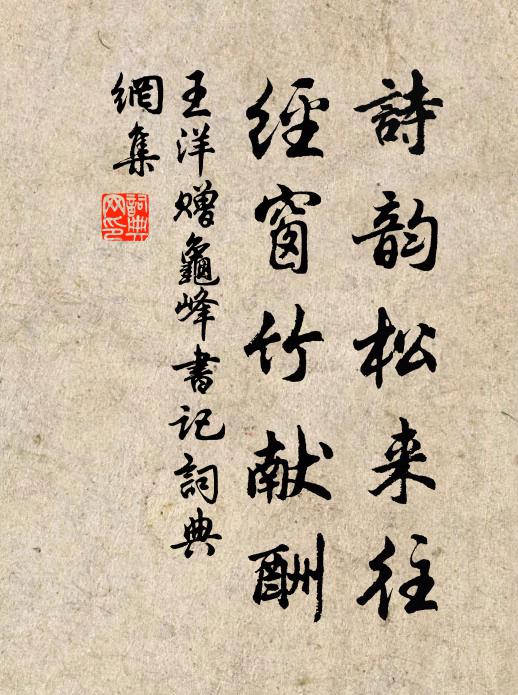 詩韵松来往
經窗竹献酬
王洋赠龜峰書记詞典
網集
詞典
网印